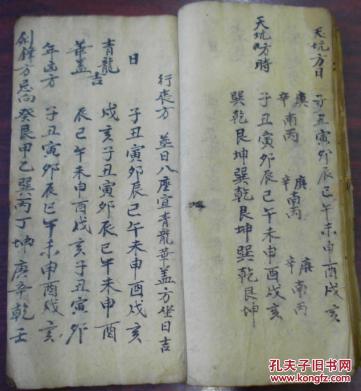 天坑方日 子丑寅卯辰巳午未申酉戌亥
庚辛 南丙 庚辛 南丙 庚辛 南丙
天坑方時 子丑寅卯辰巳午未申酉戌亥
巽乾艮坤巽乾艮坤巽乾艮坤
行丧方 葬日八座宜青龍華盖方坐日吉
日 子丑寅卯辰巳午未申酉戌亥
青龍 戌亥子丑寅卯辰巳午未申酉
吉
華盖 辰巳午未申酉戌亥子丑寅卯
年凶方 子丑寅卯辰巳午未申酉戌亥
劍鋒方忌向 癸艮甲乙巽丙丁坤庚辛乾壬
孔夫子旧书网